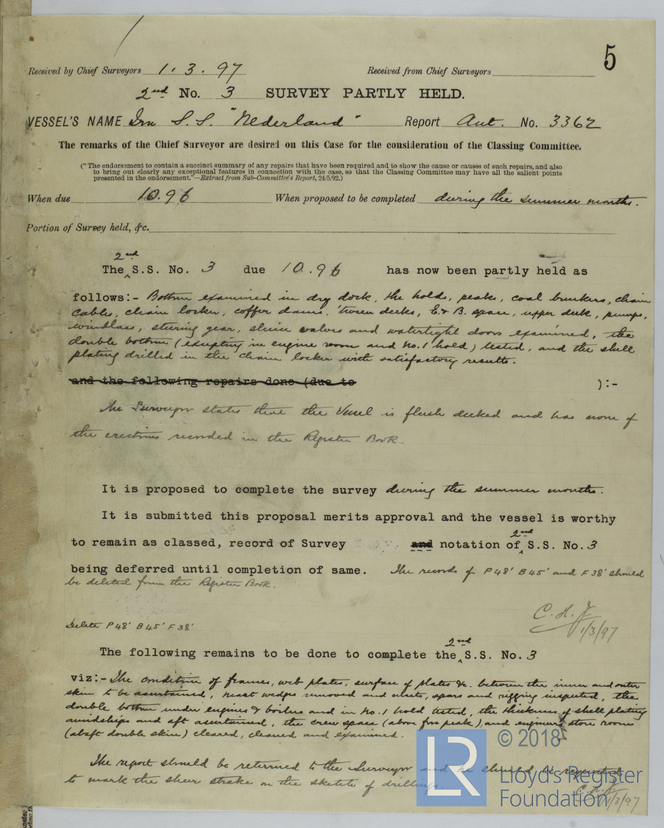 5
Received by Chief Surveyors 1.3.97 Received from Chief Surveyors
2nd No. 3 SURVEY PARTLY HELD.
VESSEL'S NAME Irn S.S. "Nederland" Report Ant. No. 3362
The remarks of the Chief Surveyor are desired on this Case for the consideration of the Classing Committee.
("The endorsement to contain a succinct summary of any repairs that have been required and to show the cause or causes of such repairs, and also
to bring out clearly any exceptional features in connection with the case, so that the Classing Committee may have all the salient points
presented in the endorsement."—Extract from Sub-Committee's Report, 24/5/92.)
When due 10.96 When proposed to be completed during the summer months.
Portion of Survey held, &c.
The 2nd S.S. No. 3 due 10.96 has now been partly held as
follows:- Bottom examined in dry dock, the holds, peaks, coal bunkers, chain
cables, chain locker, coffer dams, tween decks, E & B. space, upper deck, pumps,
windlass, steering gear, sluice valves and watertight doors examined, the
double bottom (excepting in engine room and No. 1 hold) tested, and the shell
plating drilled in the chain locker with satisfactory results.
and the following repairs done (due to ):-
The Surveyor states that the Vessel is flush decked and has none of
the erections recorded in the Register Book.
It is proposed to complete the survey during the summer months.
It is submitted this proposal merits approval and the vessel is worthy
to remain as classed, record of Survey and notation of 2nd S.S. No. 3
being deferred until completion of same. The records of P 48' B 45' and F 38' should
be deleted from the Register Book.
Delete P 48' B 45' F 38'
1/3/97
The following remains to be done to complete the 2nd S.S. No. 3
viz:- The condition of frames, web plates, surface of plates &c. between the inner and outer
skin to be ascertained, mast wedges removed and masts, spars and rigging inspected, the
double bottom under engines & boilers and in No. 1 hold tested, the thickness of shell plating
amidships and aft ascertained, the crew space (above fore peak) and engineers store room
(abaft double skin) cleared, cleaned and examined.
The report should be returned to the Surveyor and he should be requested
to mark the sheer strake on the sketch of drillings
1/3/97
LR
© 2018
Lloyd's Register
Foundation